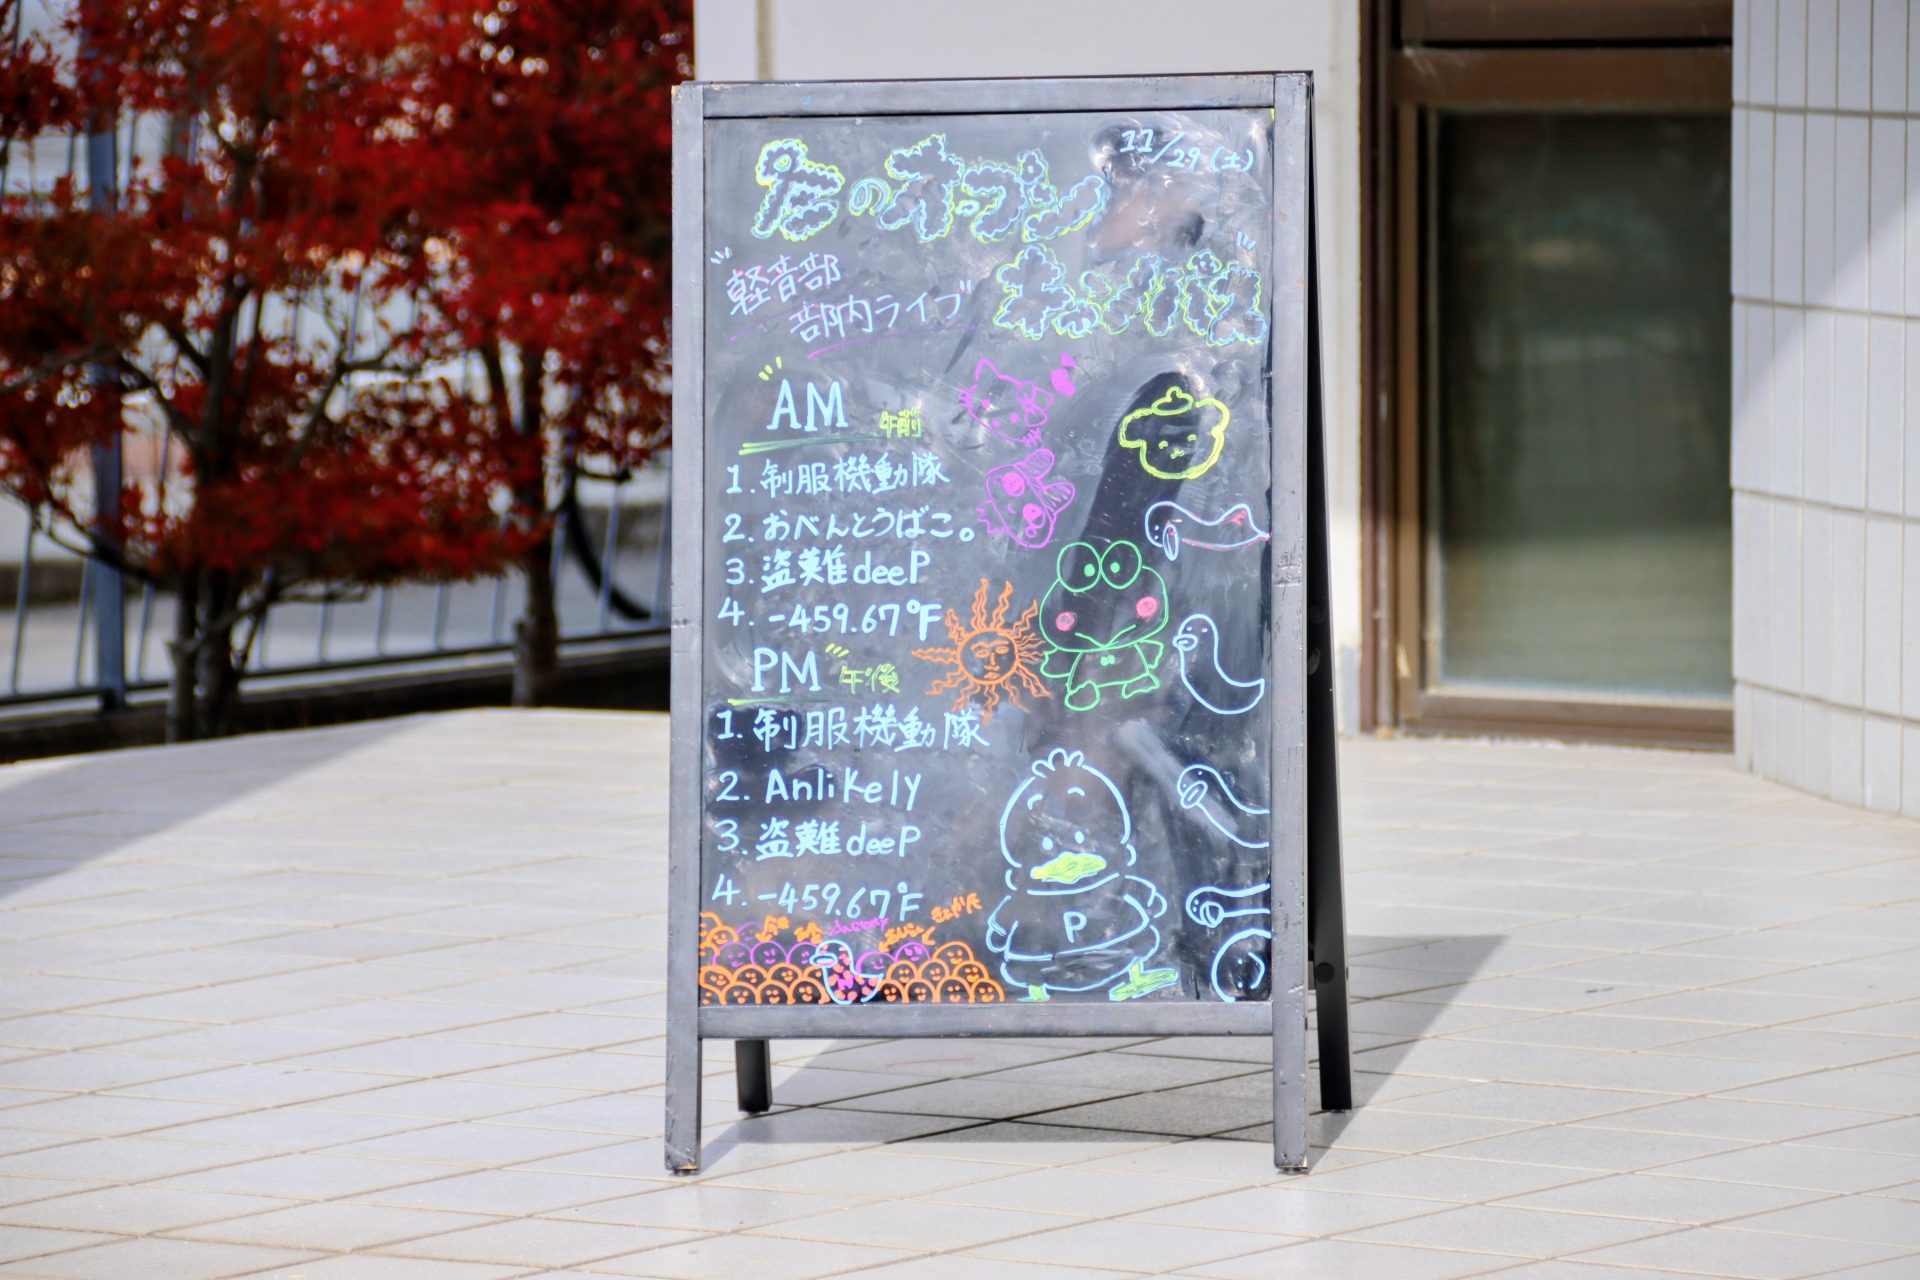 11/29(土)
冬のオープン
キャンパス
"軽音部
部内ライブ"
AM 午前
1.制服機動隊
2.おべんとうばこ。
3.盗難deeP
4.-459.67°F
PM 午後
1.制服機動隊
2.Anlikely
3.盗難deeP
4.-459.67°F
P